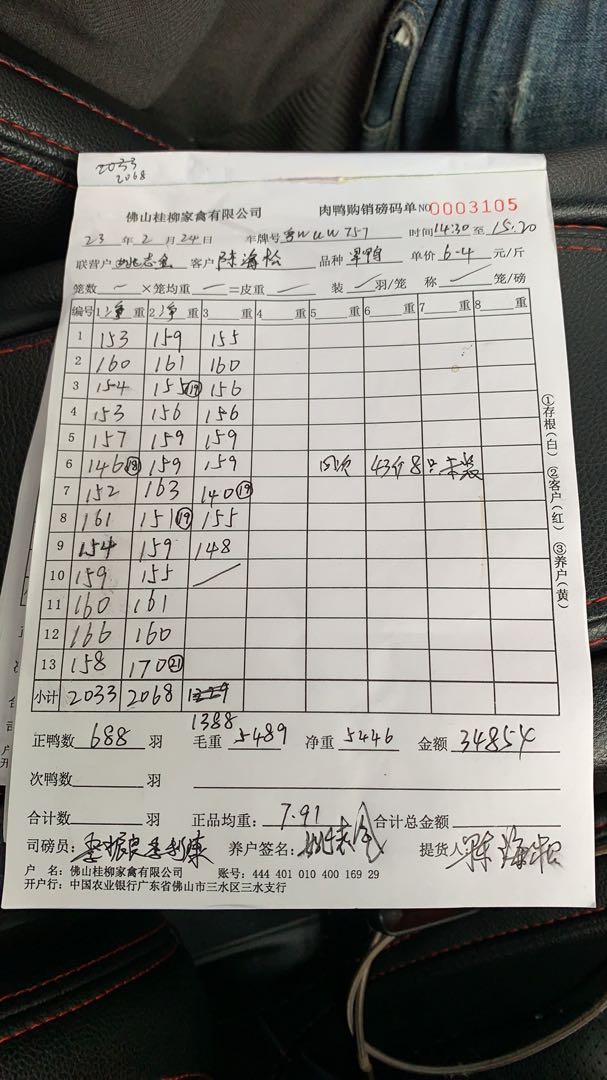 2033
2068
佛山桂柳家禽有限公司 肉鸭购销磅码单 NO 0003105
23 年 2 月 24 日 车牌号 粤WUW757 时间 14:30 至 15:20
联营户 姚志金 客户 陈海松 品种 单价 6-4 元/斤
笼数 — ×笼均重 — =皮重 — 装 — 羽/笼 称 — 笼/磅
编号 1 净 重 2 净 重 3 重 4 重 5 重 6 重 7 重 8 重
1 153 159 155
2 160 161 160
3 154 155 ⑲ 156
4 153 156 156
5 157 159 159
6 146 ⑱ 159 159 43个8只未装
7 152 163 140 ⑲
8 161 151 ⑲ 155
9 154 159 148
10 159 155 /
11 160 161
12 166 160
13 158 170 ㉑
小计 2033 2068
1388
正鸭数 688 羽 毛重 5489 净重 5446 金额 34854
次鸭数 羽
合计数 羽 正品均重: 7.91 合计总金额
司磅员: 养户签名: 提货人: 陈海松
户 名: 佛山桂柳家禽有限公司 账号: 444 401 010 400 169 29
开户行: 中国农业银行广东省佛山市三水区三水支行
①存根(白) ②客户(红) ③养户(黄)